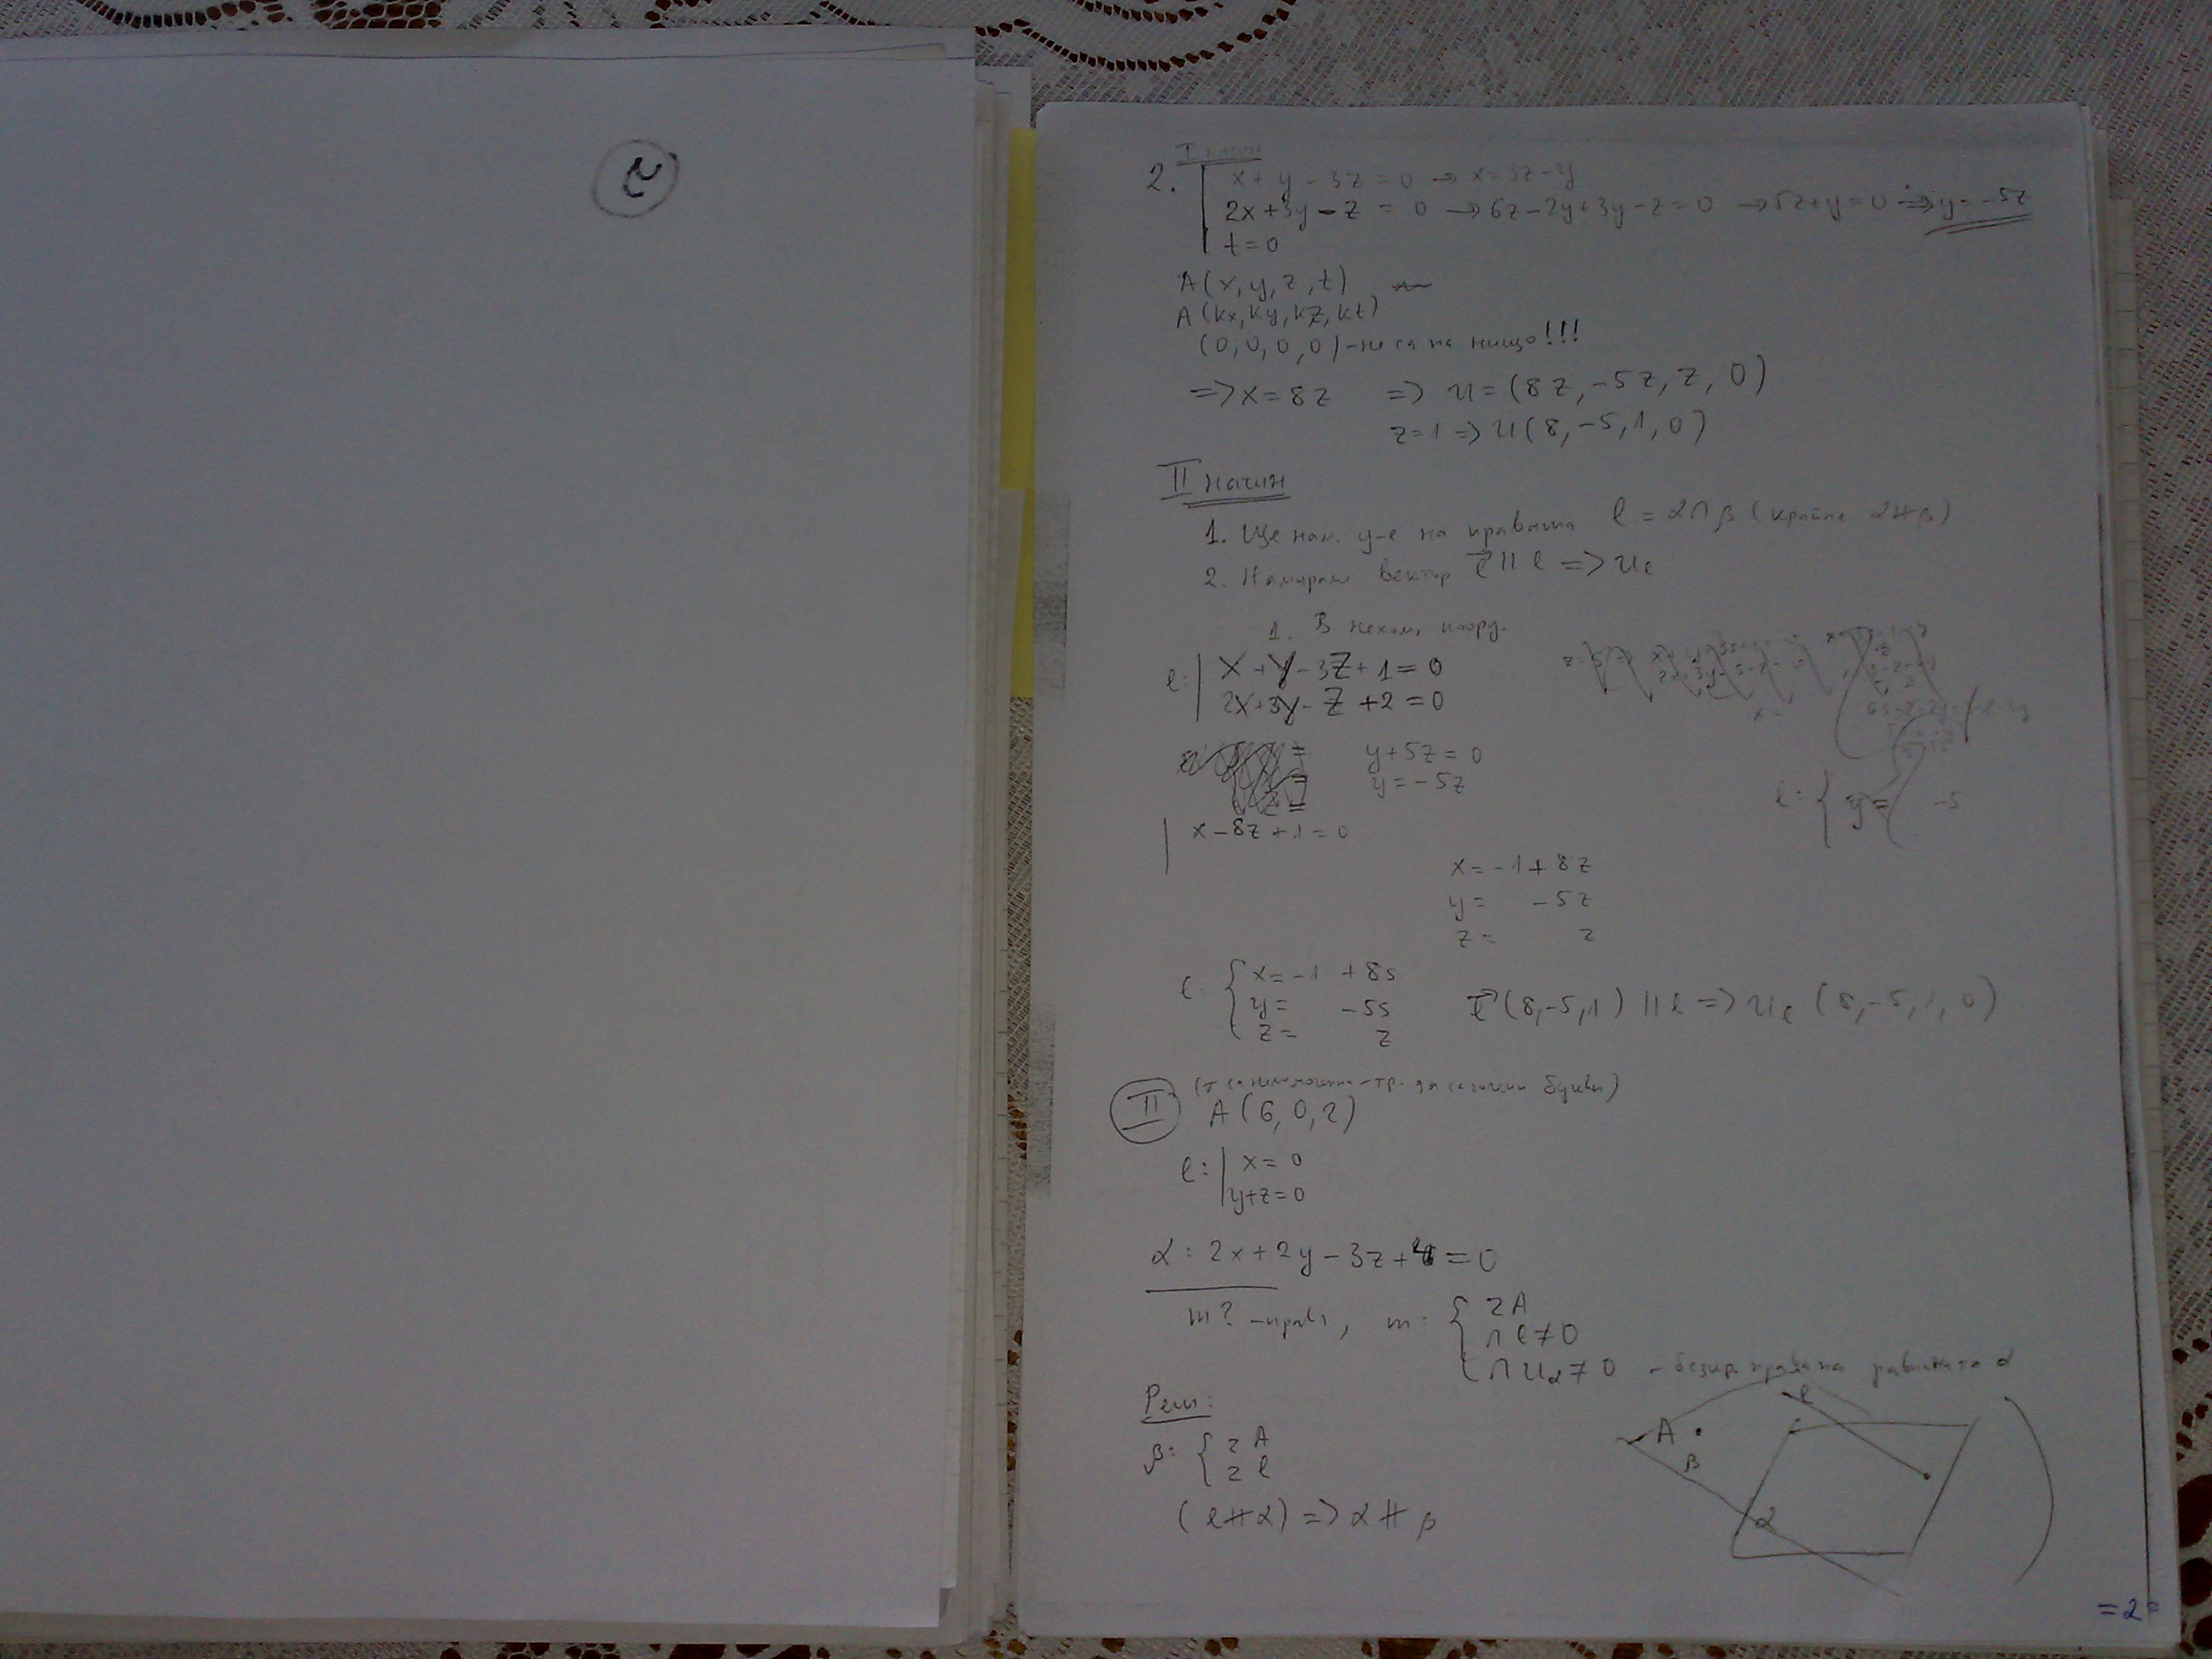 2
I начин
2. x + y - 3z = 0 → x = 3z - y
2x + 3y - z = 0 → 6z - 2y + 3y - z = 0 → 5z + y = 0 => y = -5z
t = 0
A(x, y, z, t)
A(kx, ky, kz, kt)
(0, 0, 0, 0) - не са на нищо!!!
=> x = 8z => U = (8z, -5z, z, 0)
z = 1 => U(8, -5, 1, 0)
II начин
1. Ще нам. у-е на правата l = α ∩ β (α ∦ β)
2. Намираме вектор l⃗ || l => U_l
1. В нехом. коорд.
l: | x + y - 3z + 1 = 0
2x + 3y - z + 2 = 0
y + 5z = 0
y = -5z
l: { y = -5
| x - 8z + 1 = 0
x = -1 + 8z
y = -5z
z = z
l: { x = -1 + 8s
y = -5s
z = z
l⃗(8, -5, 1) || l => U_l (8, -5, 1, 0)
II букви)
A(6, 0, 2)
l: | x = 0
y + z = 0
α: 2x + 2y - 3z + = 0
m? - права, m: { z A
∩ l ≠ 0
∩ U_α ≠ 0 - безкр. права на равнината α
Реш:
β: { z A
z l
(l ∦ α) => α ∦ β
A
β
l
α
= 2 =